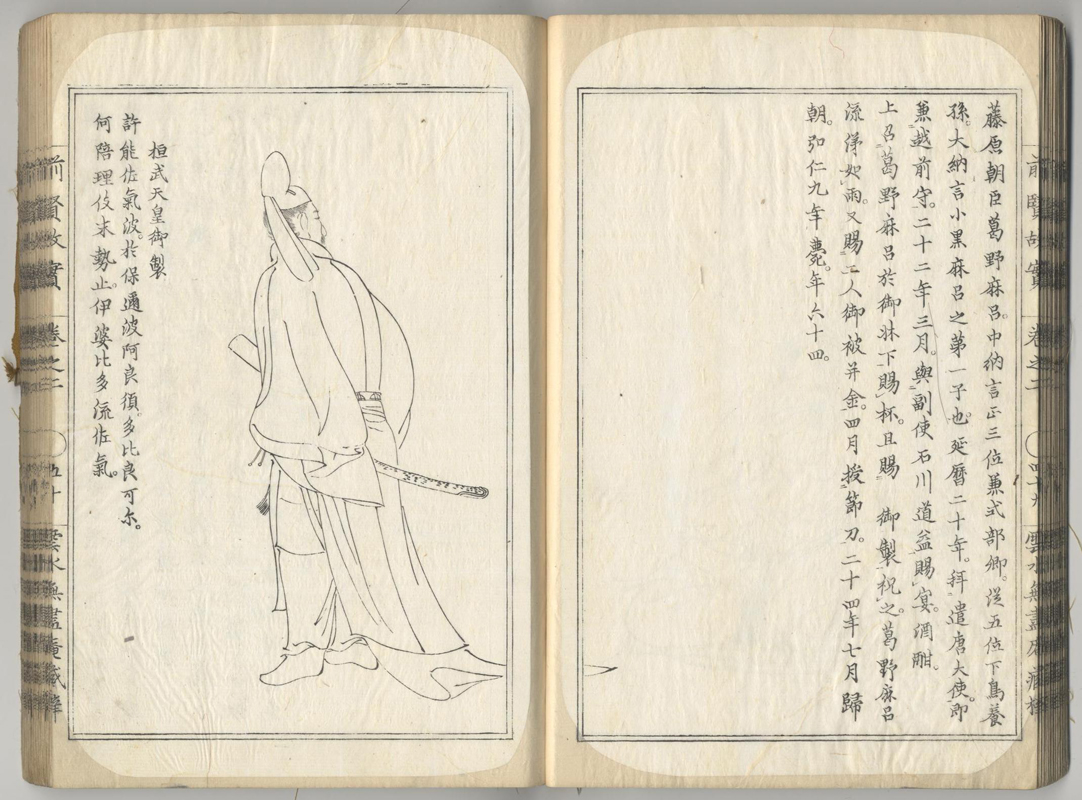 藤原朝臣葛野麻呂。中納言正三位兼式部卿。從五位下鳥養
孫。大納言小黒麻呂之第一子也。延曆二十年。拜遣唐大使。即
兼越前守。二十二年三月。與副使石川道益賜宴。酒酣。
上召葛野麻呂於御牀下賜杯。且賜 御製祝之。葛野麻呂
流涕如雨。又賜二人御被并金。四月授節刀。二十四年七月歸
朝。弘仁九年薨。年六十四。
桓武天皇御製
許能佐氣波。於保邇波阿良須。多比良可尓。
何陪理伎末勢止。伊婆比多流佐氣。
前賢故實
卷之二
五十
雲水無盡庵藏梓
前賢故實
卷之二
四十九
雲水無盡庵藏梓